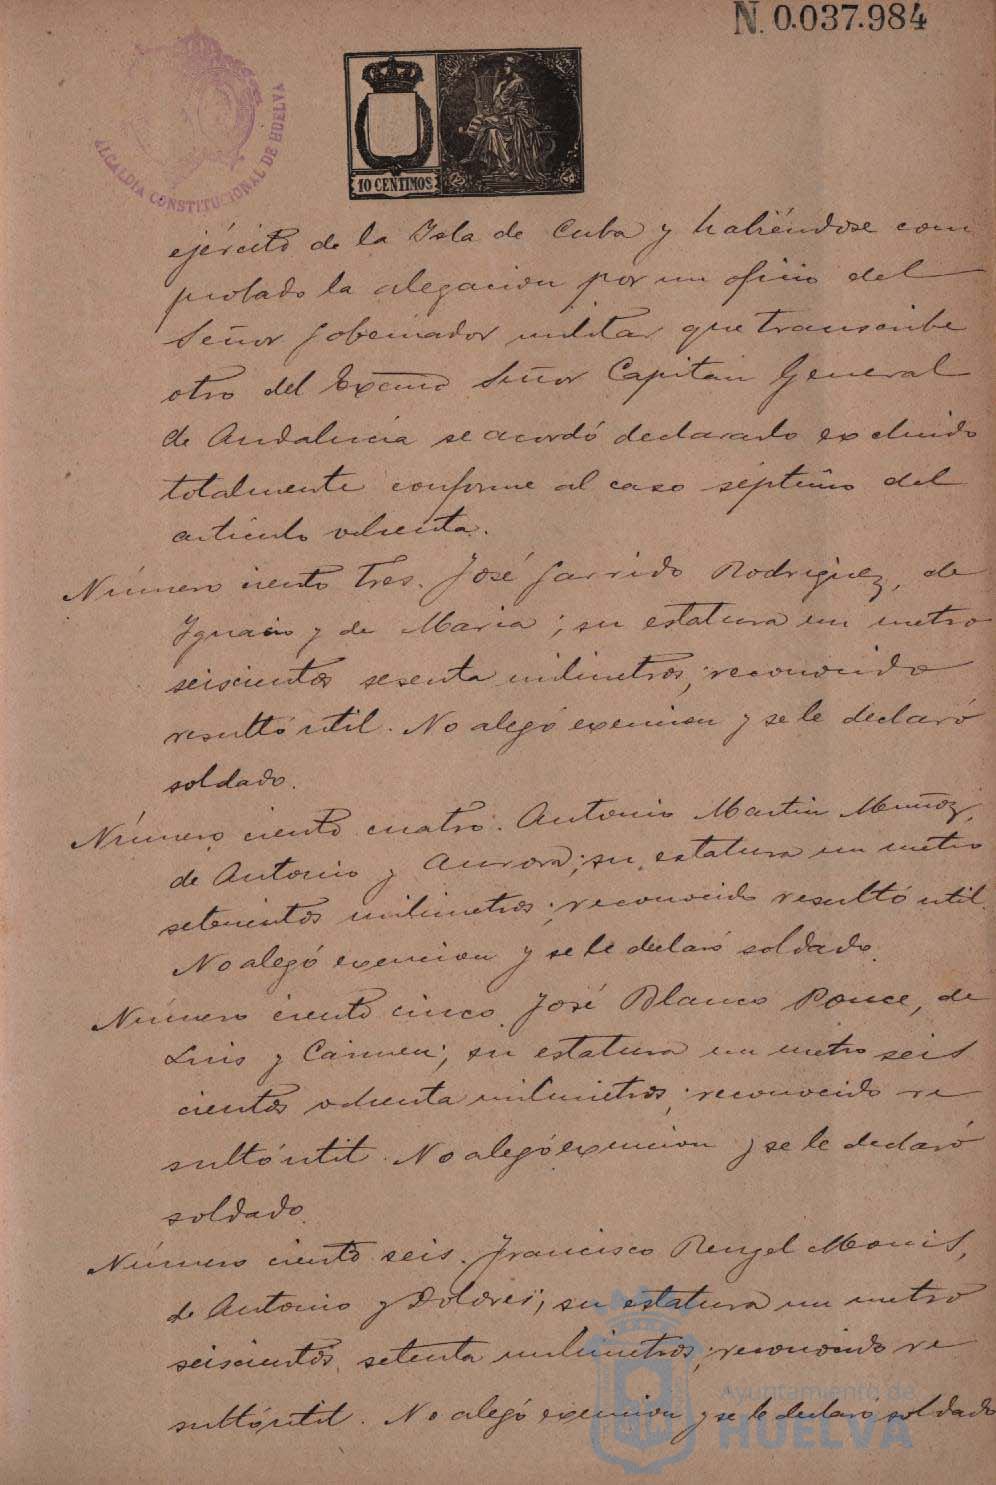 N. 0.037.984
ALCALDIA CONSTITUCIONAL DE HUELVA
10 CENTIMOS
ejército de la Isla de Cuba y habiéndose com
probado la alegacion por un oficio del
Señor Gobernador militar que transcribe
otro del Excmo Señor Capitan General
de Andalucia se acordó declararlo excluido
totalmente conforme al caso séptimo del
articulo ochenta.
Número ciento tres. José Garrido Rodriguez, de
Ignacio y de Maria; su estatura un metro
seiscientos sesenta milimetros; reconocido
resultó util. No alegó exencion y se le declaró
soldado.
Número ciento cuatro. Antonio Martin Muñoz,
de Antonio y Aurora; su estatura un metro
setecientos milimetros; reconocido resultó util.
No alegó exencion y se le declaró soldado.
Número ciento cinco. José Blanco Ponce, de
Luis y Carmen; su estatura un metro seis
cientos ochenta milimetros; reconocido re
sultó util. No alegó exencion y se le declaró
soldado.
Número ciento seis. Francisco Rengel Monis,
de Antonio y Dolores; su estatura un metro
seiscientos setenta milimetros; reconocido re
sultó util. No alegó exencion y se le declaró soldado
Ayuntamiento de
HUELVA